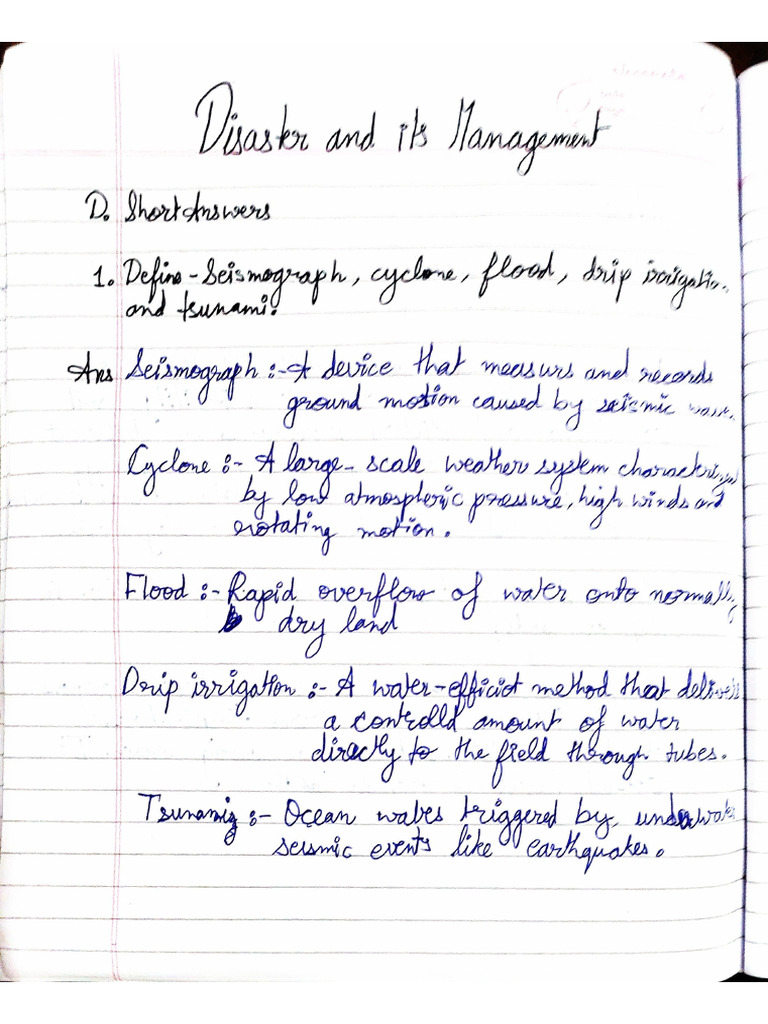 Disaster and its Management
D. Short Answers
1. Define - Seismograph, cyclone, flood, drip irrigation,
and tsunami.
Ans Seismograph :- A device that measurs and records
ground motion caused by seismic
Cyclone :- A large-scale weather system
by low atmospheric pressure, high winds and
rotating motion.
Flood :- Rapid overflow of water onto normally
dry land
Drip irrigation :- A water-efficiet method that
a controlld amount of water
directly to the field through tubes.
Tsunami :- Ocean waves triggered by underwater
seismic events like earthquakes.